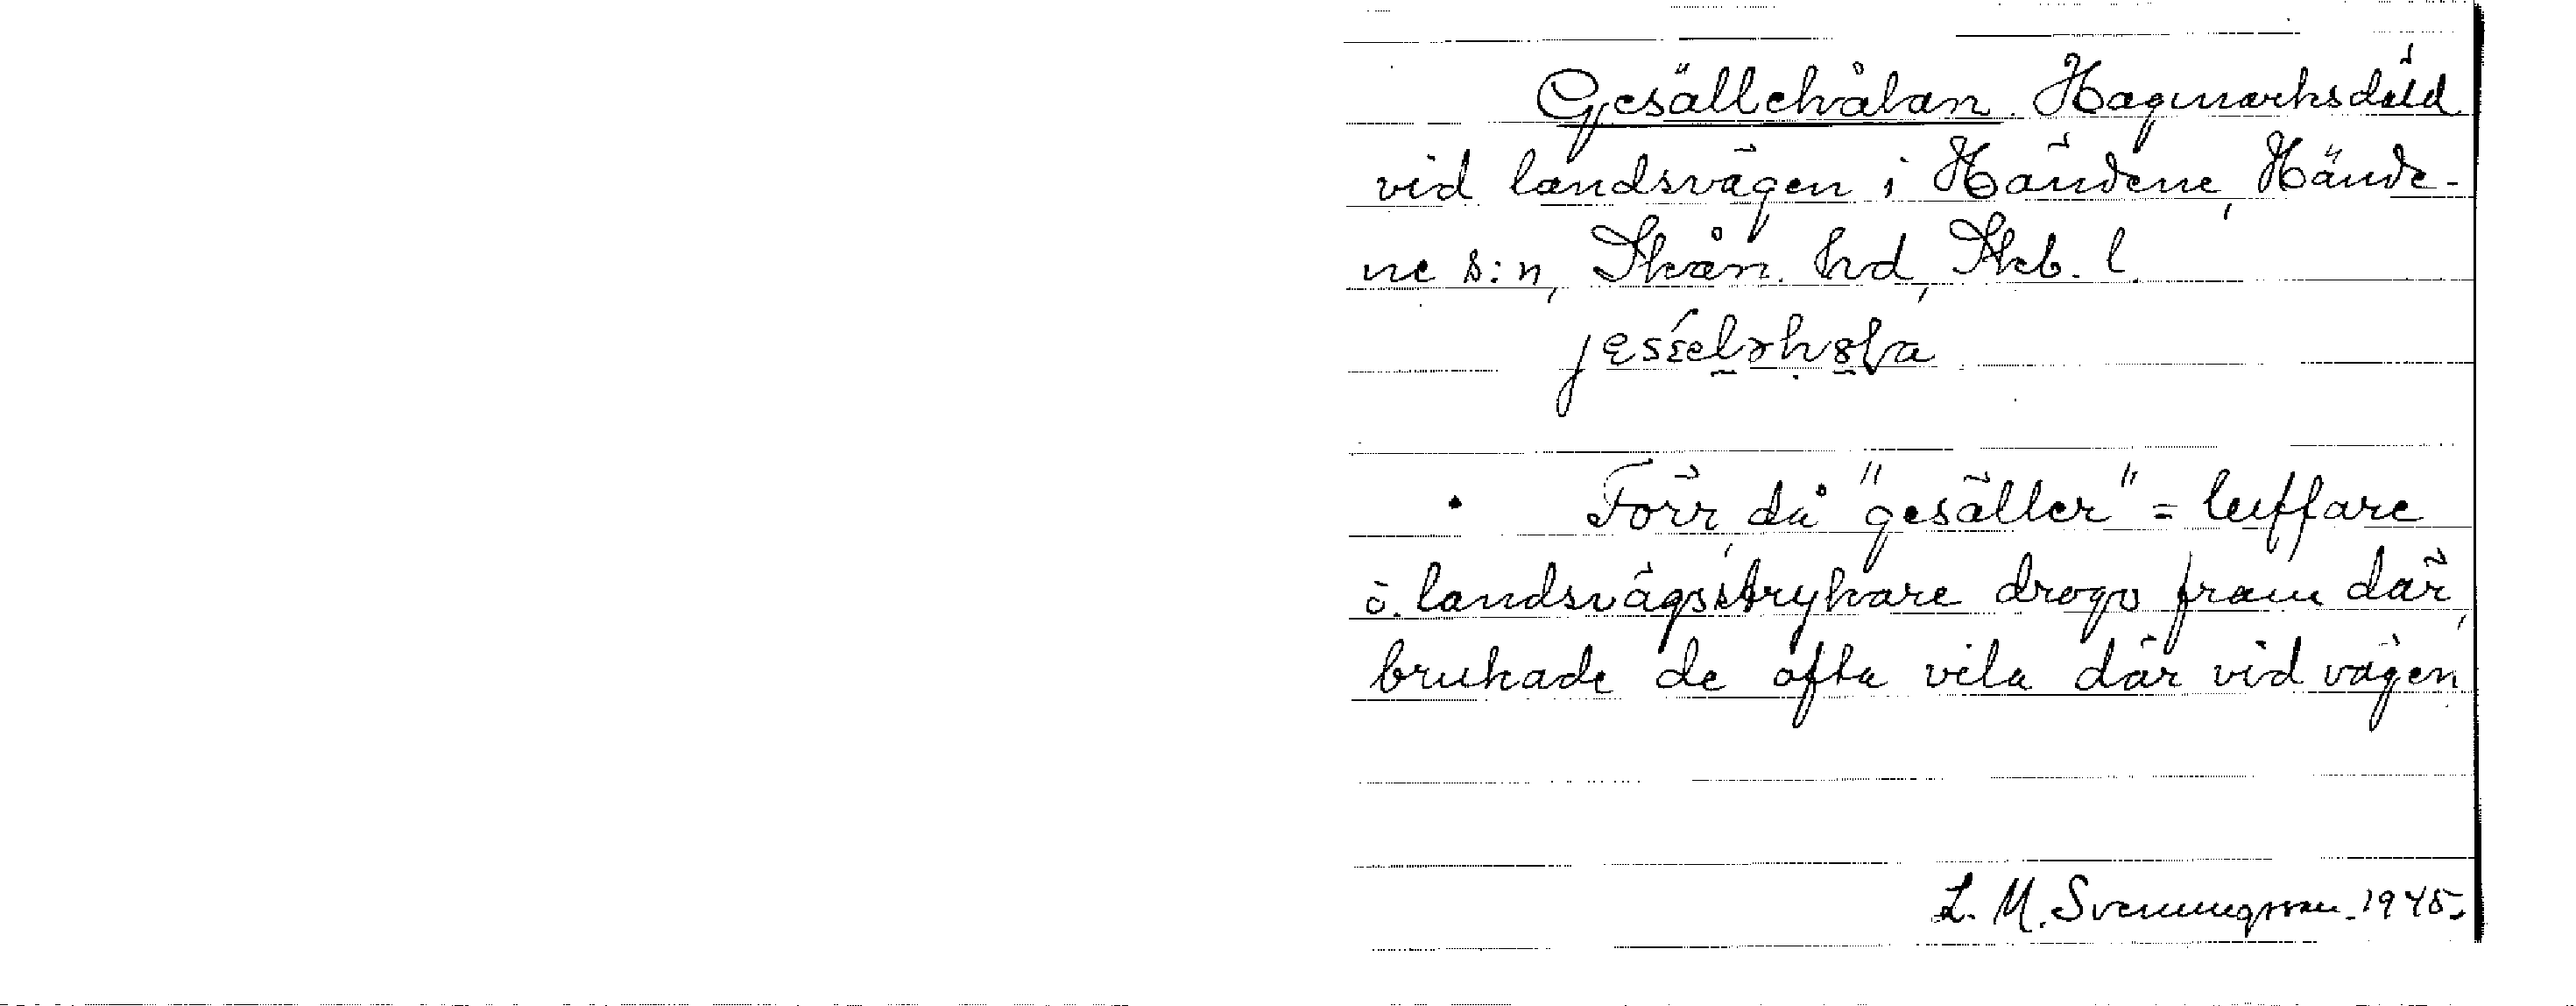 Gesällehålan. Hagmarksdäld
vid landsvägen i Händene, Hände-
ne s:n, Skån. hd, Skb. l.
Förr, då "gesäller" = luffare
o. landsvägsstrykare drogo fram där,
brukade de ofta vila där vid vägen
L. M. Svenungsson. 1945.